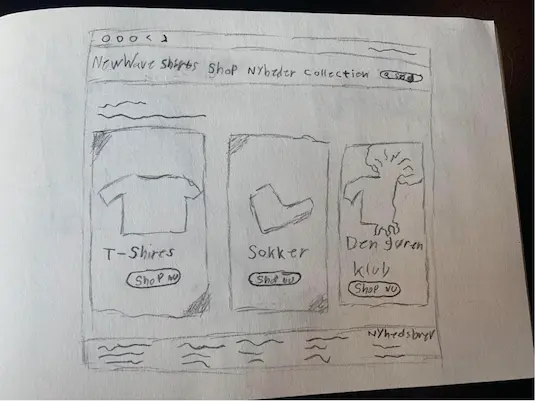 NewWave Shirts Shop Nyheder Collection
T-Shires
Shop nu
Sokker
Shop nu
klub
Shop nu
Nyhedsbrev